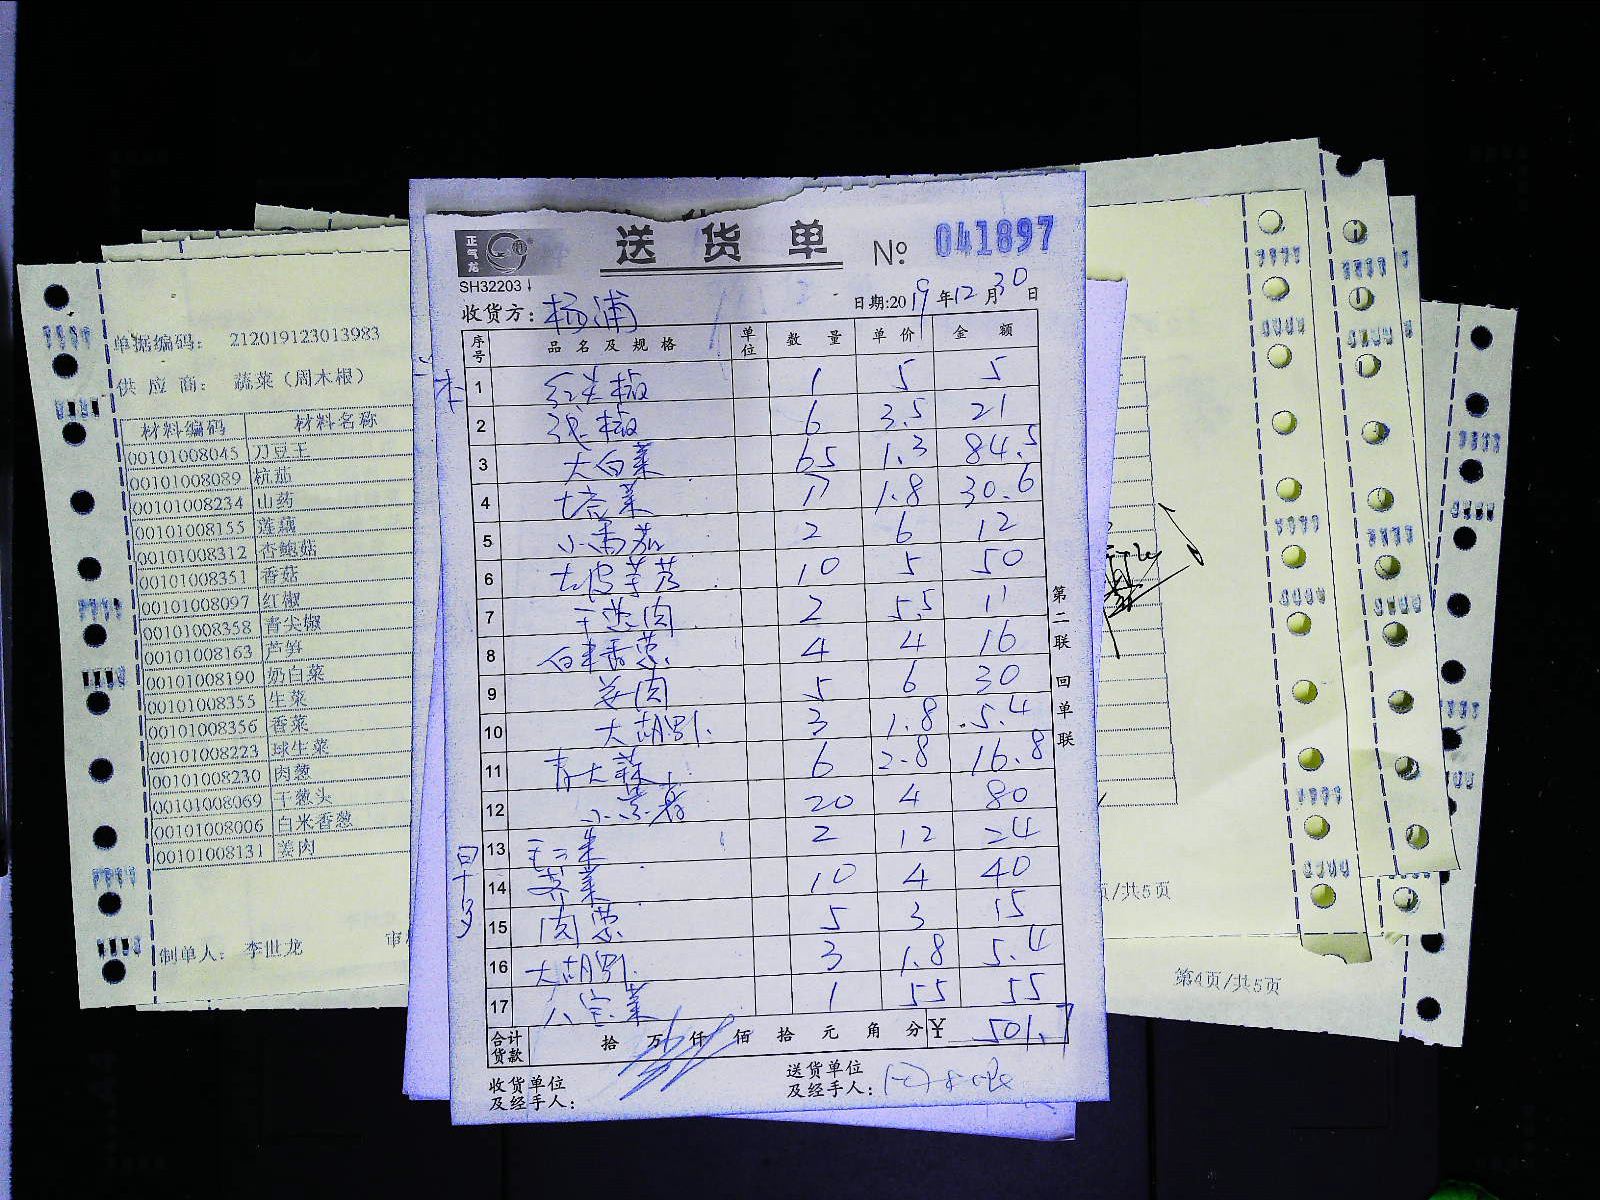 送货单
No 041897
正气龙
SH32203
收货方: 杨浦
日期:2019年12月30日
序号 品名及规格 单位 数量 单价 金额
1 红尖椒 1 5 5
2 泡椒 6 3.5 21
3 大白菜 65 1.3 84.5
4 塔菜 17 1.8 30.6
5 小番茄 2 6 12
6 去皮芋艿 10 5 50
7 干葱肉 2 5.5 11
8 白米香葱 4 4 16
9 姜肉 5 6 30
10 大胡萝卜 3 1.8 5.4
11 青大蒜 6 2.8 16.8
12 20 4 80
13 2 12 24
14 荠菜 10 4 40
15 肉葱 5 3 15
16 大胡萝卜 3 1.8 5.4
17 八宝菜 1 55 55
合计货款 拾万仟佰拾元角分 ¥ 501.7
收货单位及经手人:
送货单位及经手人:
第二联 回单联
单据编码: 212019123013983
供应商: 蔬菜（周木根）
材料编码 材料名称
00101008045 刀豆王
00101008089 杭茄
00101008234 山药
00101008155 莲藕
00101008312 杏鲍菇
00101008351 香菇
00101008097 红椒
00101008358 青尖椒
00101008163 芦笋
00101008190 奶白菜
00101008355 生菜
00101008356 香菜
00101008223 球生菜
00101008230 肉葱
00101008069 干葱头
00101008006 白米香葱
00101008131 姜肉
制单人: 李世龙
审
页/共5页
第4页/共5页